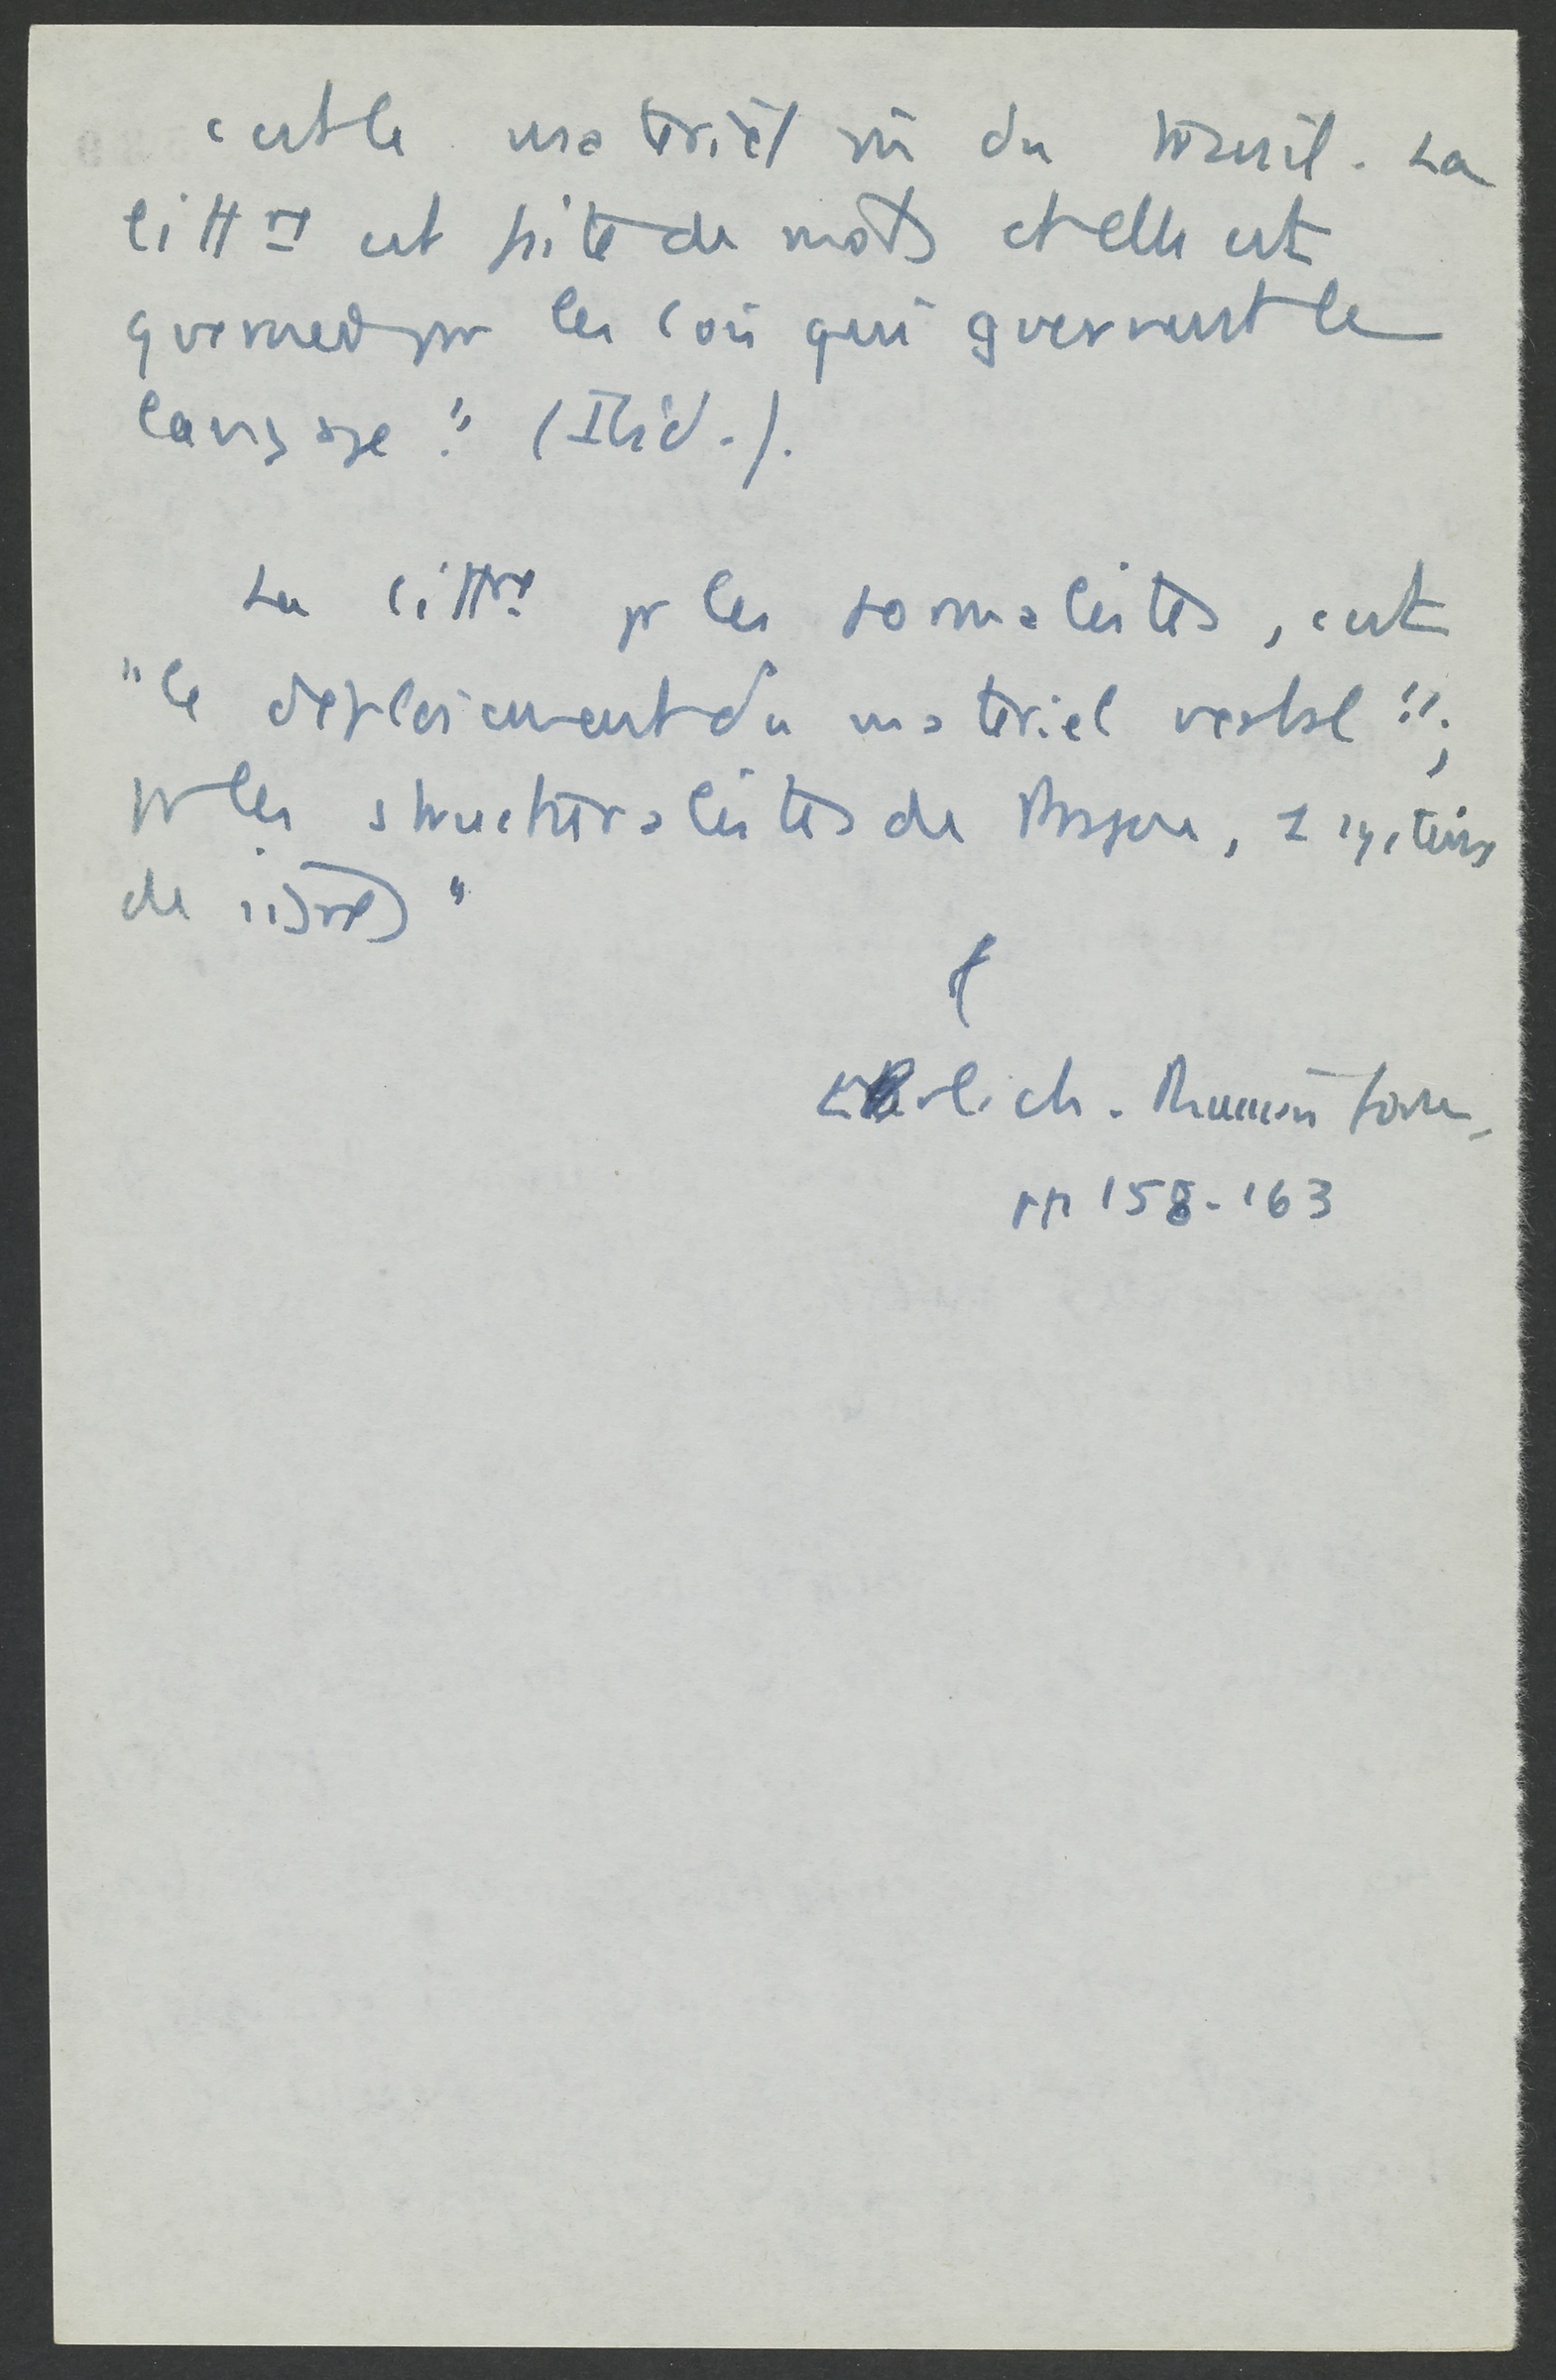 c'est le matériel vu du travail. La
litt re est faite de mots et elle est
gouvernée par les lois qui gouvernent le
langage." (Ibid.).
La litt re pr les formalistes, c'est
"le déploiement du matériel verbal";
pr les structuralistes de Prague, 1 système
de signes"
Erlich. Russian Form.
pp 158-163